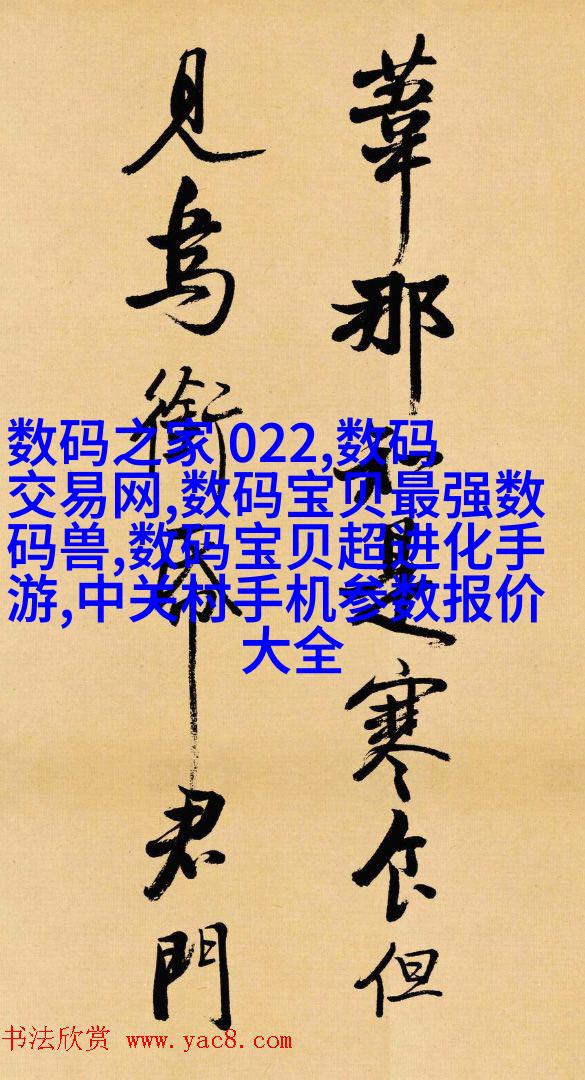 葦那知是寒食但
見烏銜帋君門
数码之家 022,数码
交易网,数码宝贝最强数
码兽,数码宝贝超进化手
游,中关村手机参数报价
大全
书法欣赏 www.yac8.com